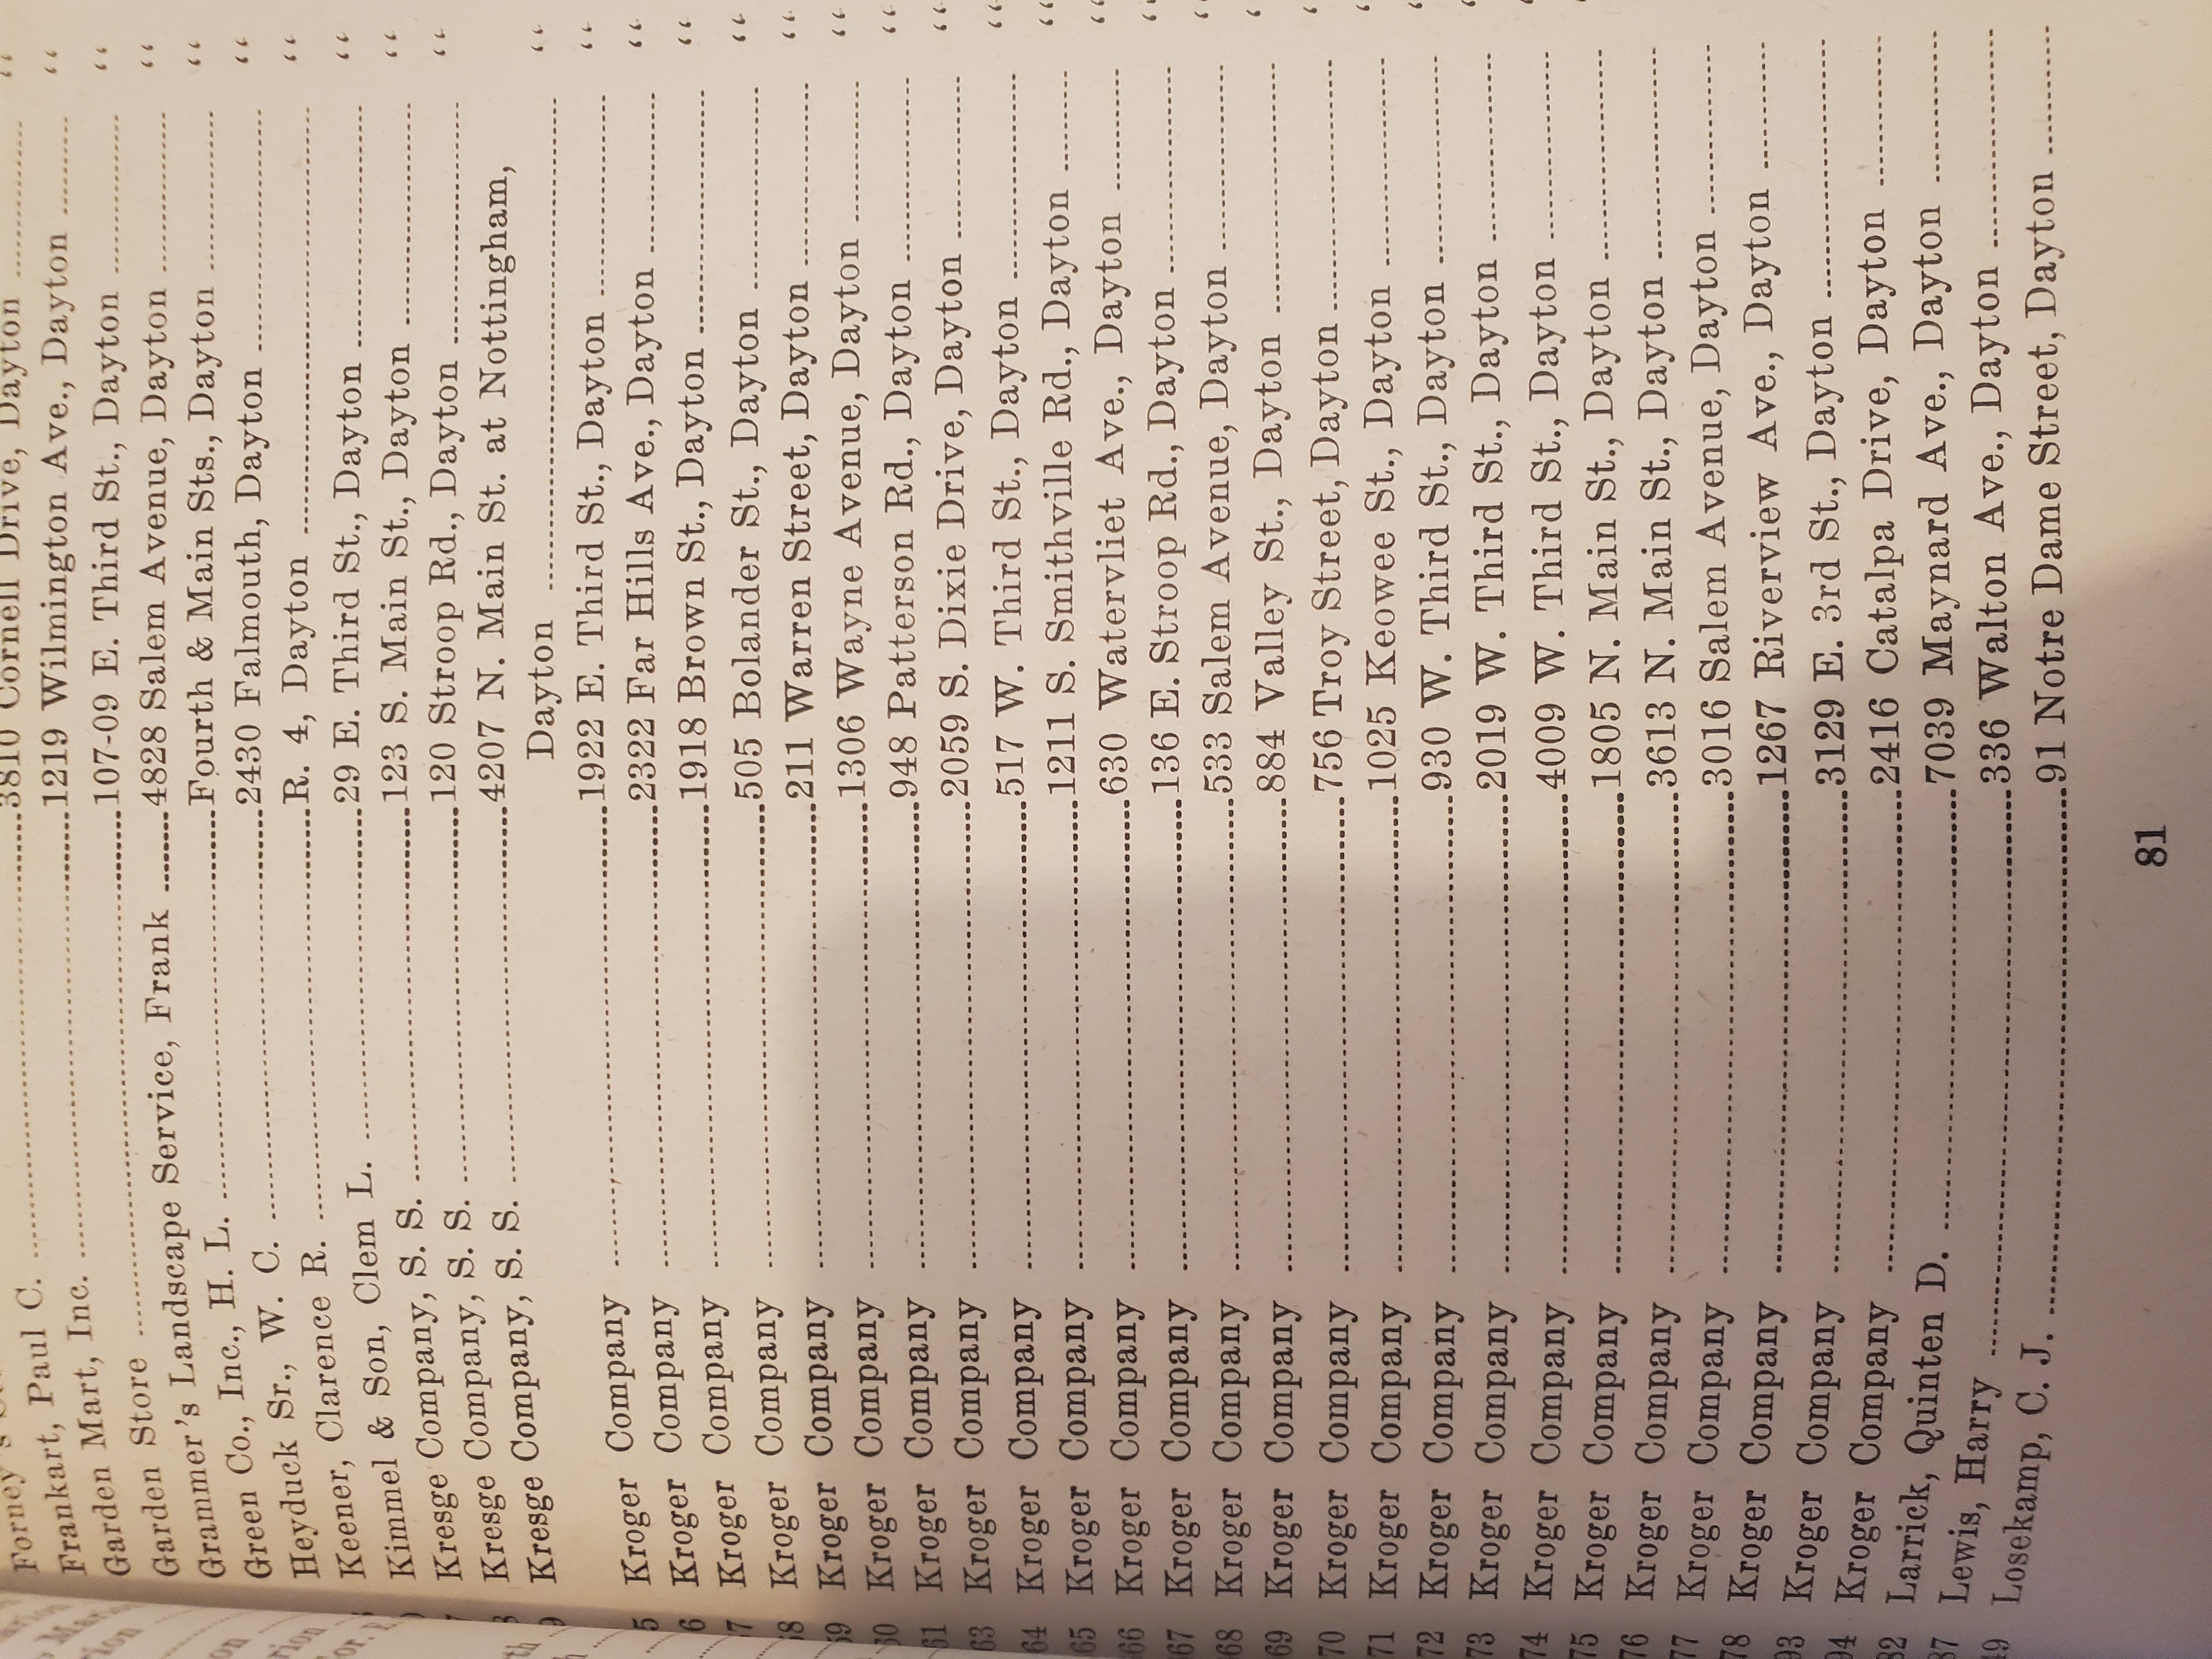 Frankart, Paul C. 3810 Cornell Drive, Dayton "
Garden Mart, Inc. 1219 Wilmington Ave., Dayton "
Garden Store 107-09 E. Third St., Dayton "
Grammer's Landscape Service, Frank 4828 Salem Avenue, Dayton "
Green Co., Inc., H. L. Fourth & Main Sts., Dayton "
Heyduck Sr., W. C. 2430 Falmouth, Dayton "
Keener, Clarence R. R. 4, Dayton "
Kimmel & Son, Clem L. 29 E. Third St., Dayton "
Kresge Company, S. S. 123 S. Main St., Dayton "
Kresge Company, S. S. 120 Stroop Rd., Dayton "
Kresge Company, S. S. 4207 N. Main St. at Nottingham,
Dayton "
5 Kroger Company 1922 E. Third St., Dayton "
6 Kroger Company 2322 Far Hills Ave., Dayton "
7 Kroger Company 1918 Brown St., Dayton "
58 Kroger Company 505 Bolander St., Dayton "
59 Kroger Company 211 Warren Street, Dayton "
60 Kroger Company 1306 Wayne Avenue, Dayton "
61 Kroger Company 948 Patterson Rd., Dayton "
63 Kroger Company 2059 S. Dixie Drive, Dayton "
64 Kroger Company 517 W. Third St., Dayton "
65 Kroger Company 1211 S. Smithville Rd., Dayton "
66 Kroger Company 630 Watervliet Ave., Dayton "
67 Kroger Company 136 E. Stroop Rd., Dayton "
68 Kroger Company 533 Salem Avenue, Dayton "
69 Kroger Company 884 Valley St., Dayton
70 Kroger Company 756 Troy Street, Dayton
71 Kroger Company 1025 Keowee St., Dayton
72 Kroger Company 930 W. Third St., Dayton
73 Kroger Company 2019 W. Third St., Dayton
74 Kroger Company 4009 W. Third St., Dayton
75 Kroger Company 1805 N. Main St., Dayton
76 Kroger Company 3613 N. Main St., Dayton
77 Kroger Company 3016 Salem Avenue, Dayton
78 Kroger Company 1267 Riverview Ave., Dayton
93 Kroger Company 3129 E. 3rd St., Dayton
94 Kroger Company 2416 Catalpa Drive, Dayton
82 Larrick, Quinten D. 7039 Maynard Ave., Dayton
87 Lewis, Harry 336 Walton Ave., Dayton
49 Losekamp, C. J. 91 Notre Dame Street, Dayton
81